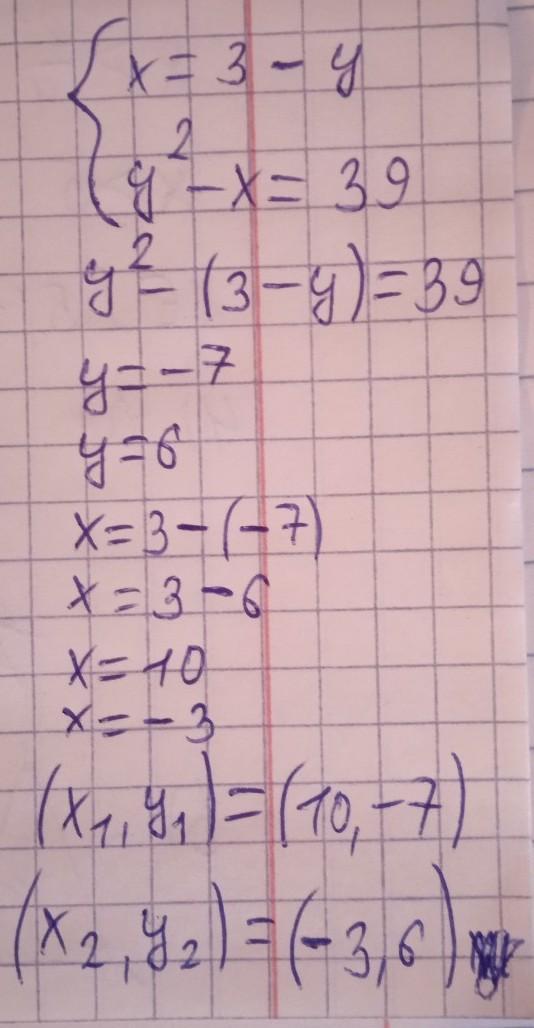 x = 3 - y
y² - x = 39
y² - (3 - y) = 39
y = -7
y = 6
x = 3 - (-7)
x = 3 - 6
x = 10
x = -3
(x₁, y₁) = (10, -7)
(x₂, y₂) = (-3, 6)